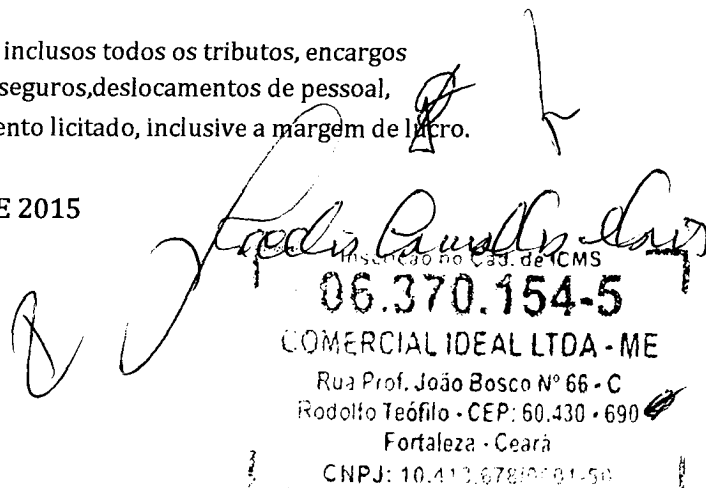 inclusos todos os tributos, encargos
seguros,deslocamentos de pessoal,
ento licitado, inclusive a margem de lucro.
E 2015
Inscrição no Cad. de ICMS
06.370.154-5
COMERCIAL IDEAL LTDA - ME
Rua Prof. João Bosco Nº 66 - C
Rodolfo Teófilo - CEP: 60.430 - 690
Fortaleza - Ceará
CNPJ: 10.413.678/0001-50